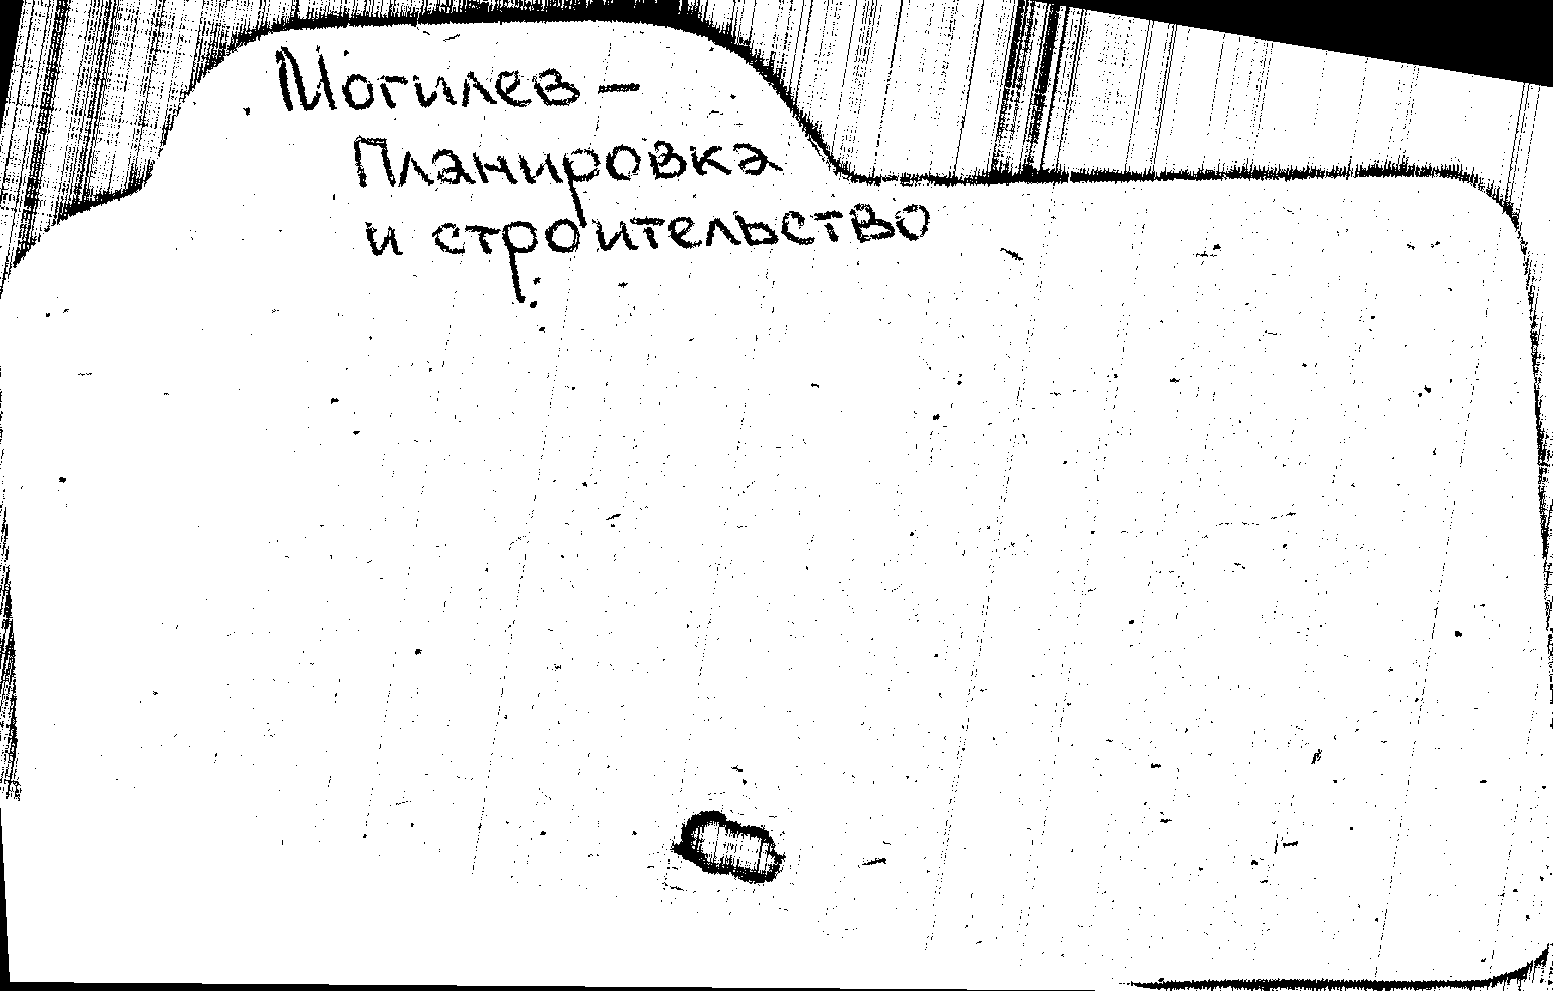 Могилев –
Планировка
и строительство